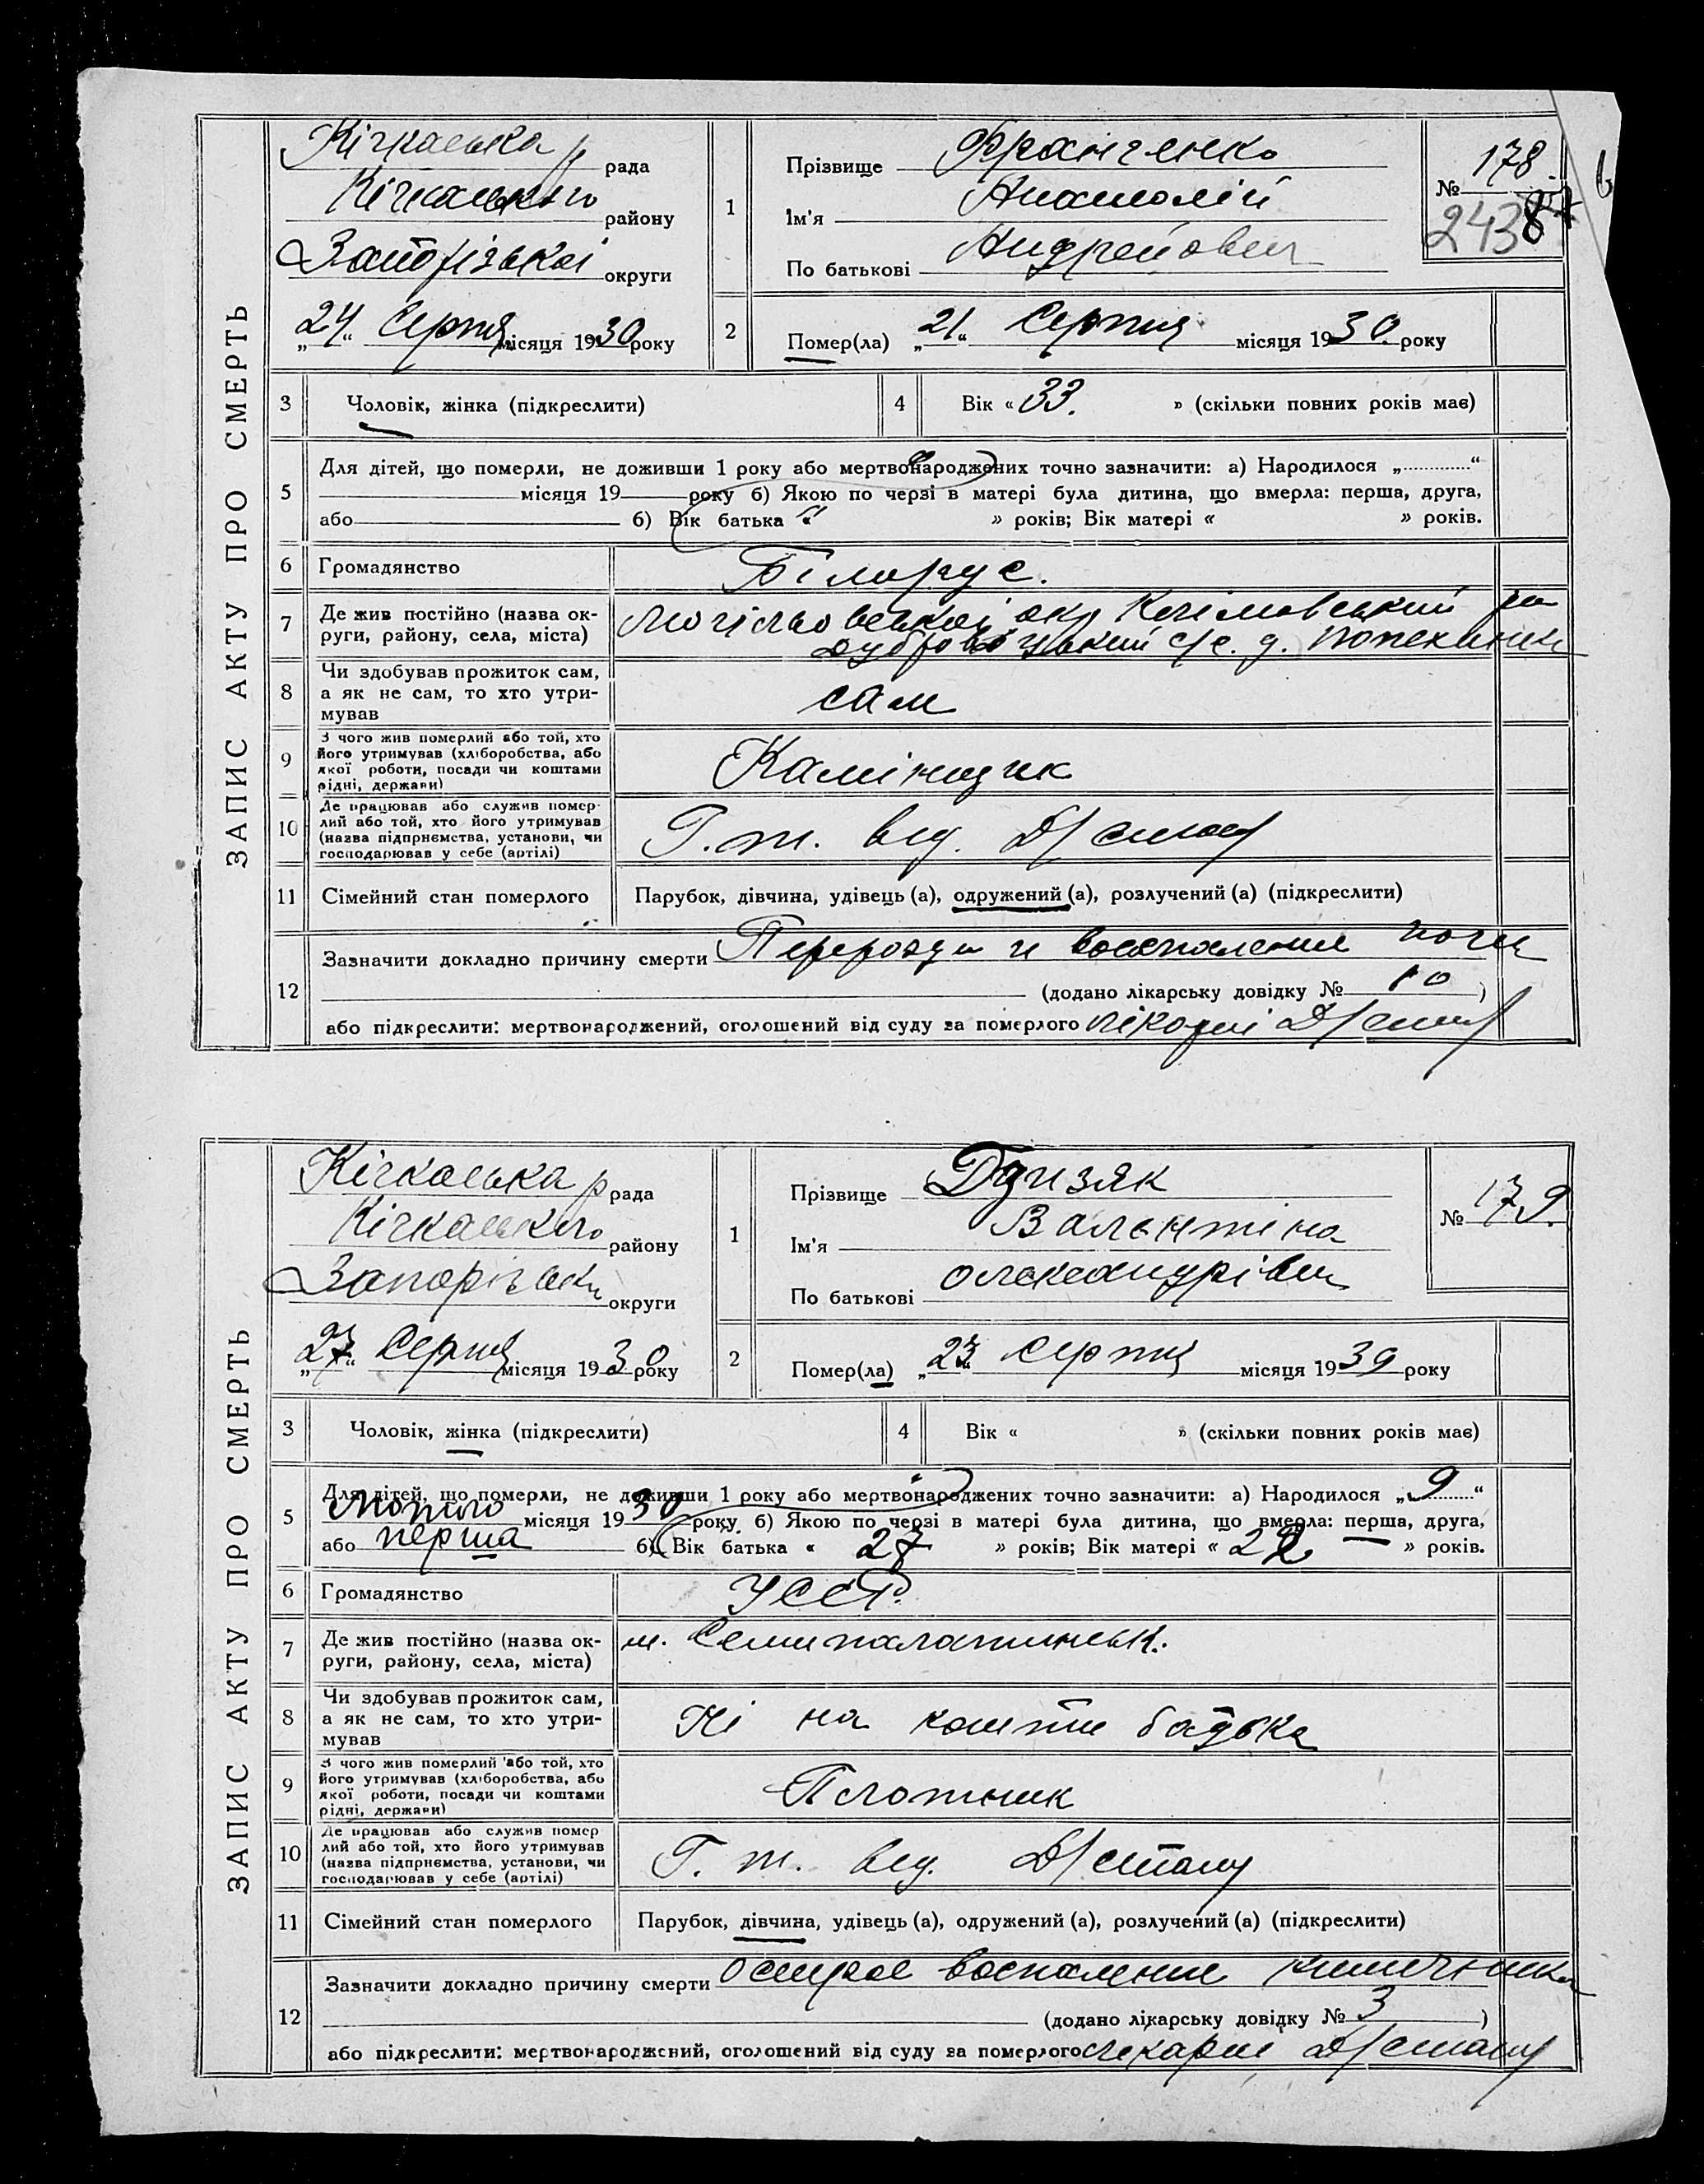 ЗАПИС АКТУ ПРО СМЕРТЬ
Кічкаська р рада
Кічкаського району
Запорізької округи
„24“ Серпня місяця 1930 року
1
Прізвище Франченко
Ім'я Анатолій
По батькові Андрейович
№ 178
2438
2
Помер(ла) „21“ Серпня місяця 1930 року
3 Чоловік, жінка (підкреслити)
4 Вік «33.» (скільки повних років має)
5 Для дітей, що померли, не доживши 1 року або мертвонароджених точно зазначити: а) Народилося „ “
місяця 19 року б) Якою по черзі в матері була дитина, що вмерла: перша, друга,
або б) Вік батька « » років; Вік матері « » років.
6 Громадянство Білорус.
7 Де жив постійно (назва ок-
руги, району, села, міста)
окр
с/с. д.
8 Чи здобував прожиток сам,
а як не сам, то хто утри-
мував
сам
9 З чого жив померлий або той, хто
його утримував (хліборобства, або
якої роботи, посади чи коштами
рідні, держави)
Камінщик
10 Де працював або служив помер-
лий або той, хто його утримував
(назва підприємства, установи, чи
господарював у себе (артілі)
Г. т. від. Д/стану
11 Сімейний стан померлого Парубок, дівчина, удівець (а), одружений (а), розлучений (а) (підкреслити)
12 Зазначити докладно причину смерти воспаление
(додано лікарську довідку № 10)
або підкреслити: мертвонароджений, оголошений від суду за померлого Д/стану
ЗАПИС АКТУ ПРО СМЕРТЬ
Кічкаська р рада
Кічкаського району
Запорізьки округи
„27“ Серпня місяця 1930 року
1
Прізвище
Ім'я Валентіна
По батькові Олександрівн
№ 179.
2
Помер(ла) „23“ Серпня місяця 1930 року
3 Чоловік, жінка (підкреслити)
4 Вік « » (скільки повних років має)
5 Для дітей, що померли, не доживши 1 року або мертвонароджених точно зазначити: а) Народилося „9“
Лютого місяця 1930 року б) Якою по черзі в матері була дитина, що вмерла: перша, друга,
або перша б) Вік батька «27» років; Вік матері «22» років.
6 Громадянство УССР.
7 Де жив постійно (назва ок-
руги, району, села, міста)
м. Семипалатинськ.
8 Чи здобував прожиток сам,
а як не сам, то хто утри-
мував
Ні на кошти батька
9 З чого жив померлий або той, хто
його утримував (хліборобства, або
якої роботи, посади чи коштами
рідні, держави)
Плотник
10 Де працював або служив помер
лий або той, хто його утримував
(назва підприємства, установи, чи
господарював у себе (артілі)
Г. т. від. Д/стану
11 Сімейний стан померлого Парубок, дівчина, удівець (а), одружений (а), розлучений (а) (підкреслити)
12 Зазначити докладно причину смерти Острое воспаление кишечника
(додано лікарську довідку № 3)
або підкреслити: мертвонароджений, оголошений від суду за померлого лікарні Д/стану